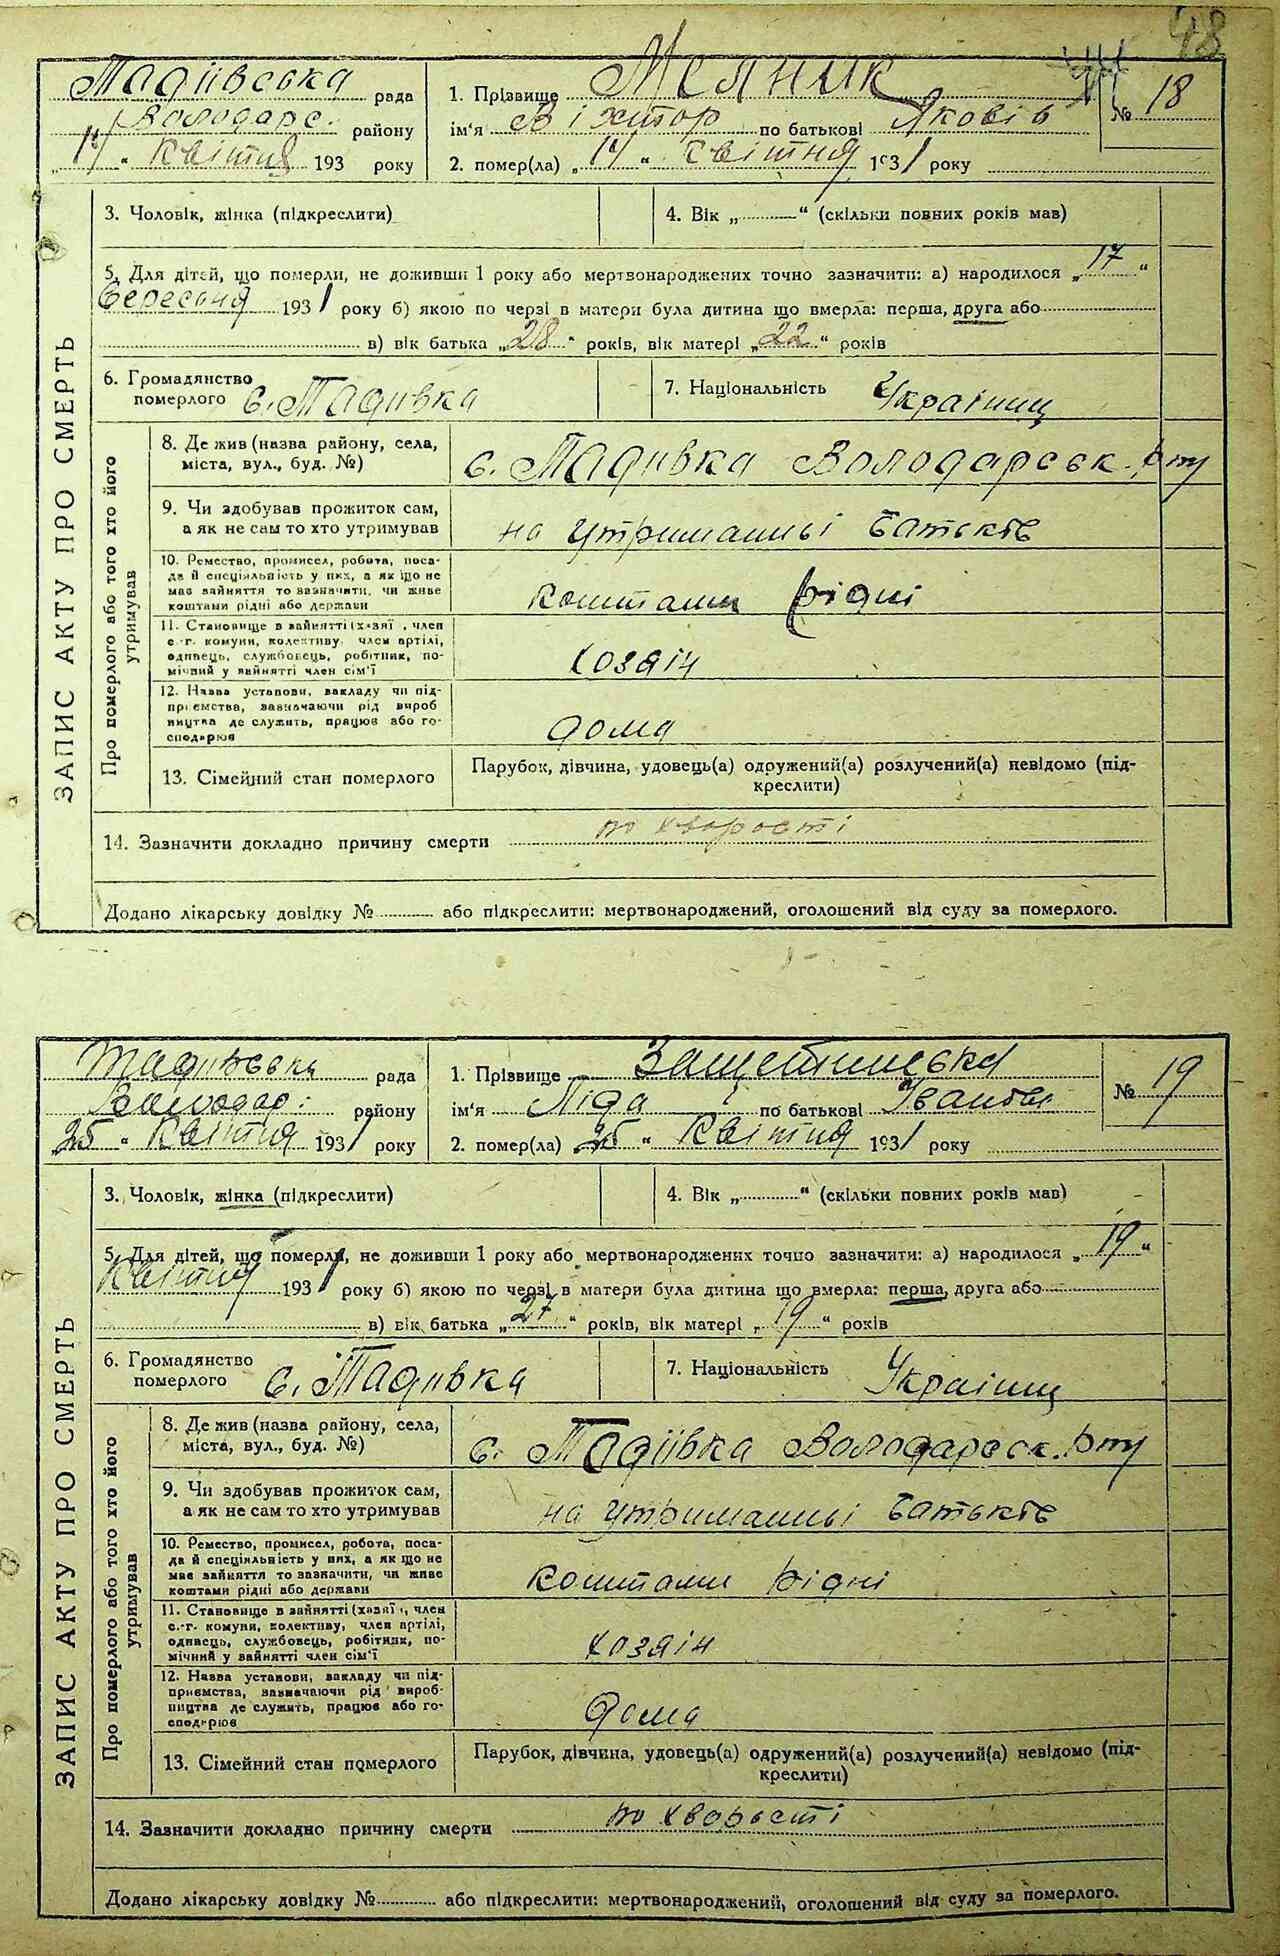 48
Тадіївська рада
Володарс. району
14 " квітня 193 року
1. Прізвище
ім'я Віктор по батькові Яковів
2. помер(ла) „14" квітня 1931 року
№ 18
3. Чоловік, жінка (підкреслити)
4. Вік „ “ (скільки повних років мав)
5. Для дітей, що померли, не доживши 1 року або мертвонароджених точно зазначити: а) народилося „17“
Вересня 1931 року б) якою по черзі в матери була дитина що вмерла: перша, друга або
в) вік батька „28“ років, вік матері „22“ років
6. Громадянство
померлого с. Тадіївка
7. Національність Українц
ЗАПИС АКТУ ПРО СМЕРТЬ
Про померлого або того хто його
утримував
8. Де жив (назва району, села,
міста, вул., буд. №)
с. Тадіївка Володарськ. р-ну
9. Чи здобував прожиток сам,
а як не сам то хто утримував
на утриманні батьків
10. Ремество, промисел, робота, поса-
да й спеціяльність у них, а як що не
має зайняття то зазначити, чи живе
коштами рідні або держави
коштами рідні
11. Становище в зайнятті (хазяї , член
с.-г. комуни, колективу, член артілі,
одинець, службовець, робітник, по-
мічний у зайнятті член сім'ї
хозяін
12. Назва установи, закладу чи під-
приємства, зазначаючи рід вироб
ництва де служить, працює або го-
сподарює
дома
13. Сімейний стан померлого
Парубок, дівчина, удовець(а) одружений(а) розлучений(а) невідомо (під-
креслити)
14. Зазначити докладно причину смерти по хворості
Додано лікарську довідку № або підкреслити: мертвонароджений, оголошений від суду за померлого.
Тадіївська рада
Володар: району
„25 " квітня 1931 року
1. Прізвище
ім'я Ліда по батькові Іванівн
2. помер(ла) „25 “ квітня 1931 року
№ 19
3. Чоловік, жінка (підкреслити)
4. Вік „ “ (скільки повних років мав)
5. Для дітей, що померли, не доживши 1 року або мертвонароджених точно зазначити: а) народилося „19“
Квітня 1931 року б) якою по черзі в матери була дитина що вмерла: перша, друга або
в) вік батька „27“ років, вік матері „19“ років
6. Громадянство
померлого с. Тадіївка
7. Національність Українц
ЗАПИС АКТУ ПРО СМЕРТЬ
Про померлого або того хто його
утримував
8. Де жив (назва району, села,
міста, вул., буд. №)
с. Тадіївка Володарськ. р-ну
9. Чи здобував прожиток сам,
а як не сам то хто утримував
на утриманні батьків
10. Ремество, промисел, робота, поса-
да й спеціяльність у них, а як що не
має зайняття то зазначити, чи живе
коштами рідні або держави
коштами рідні
11. Становище в зайнятті (хазяї , член
с.-г. комуни, колективу, член артілі,
одинець, службовець, робітник, по-
мічний у зайнятті член сім'ї
хозяін
12. Назва установи, закладу чи під-
приємства, зазначаючи рід вироб-
ництва де служить, працює або го-
сподарює
дома
13. Сімейний стан померлого
Парубок, дівчина, удовець(а) одружений(а) розлучений(а) невідомо (під-
креслити)
14. Зазначити докладно причину смерти по хворості
Додано лікарську довідку № або підкреслити: мертвонароджений, оголошений від суду за померлого.